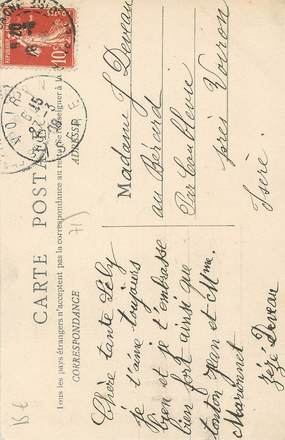 CARTE POSTALE
Tous les pays étrangers n'acceptent pas la correspondance au recto. (Se renseigner à la
CORRESPONDANCE
ADRESSE
Chère tante Lély
je t'aime toujours
bien et je t'embrasse
bien fort ainsi que
tonton Jean et Mme
Marionnet
Zézé Deveau
Madame J. Deveau
au Bérard
Par Coublevie
près Voiron
Isère
10
15 €